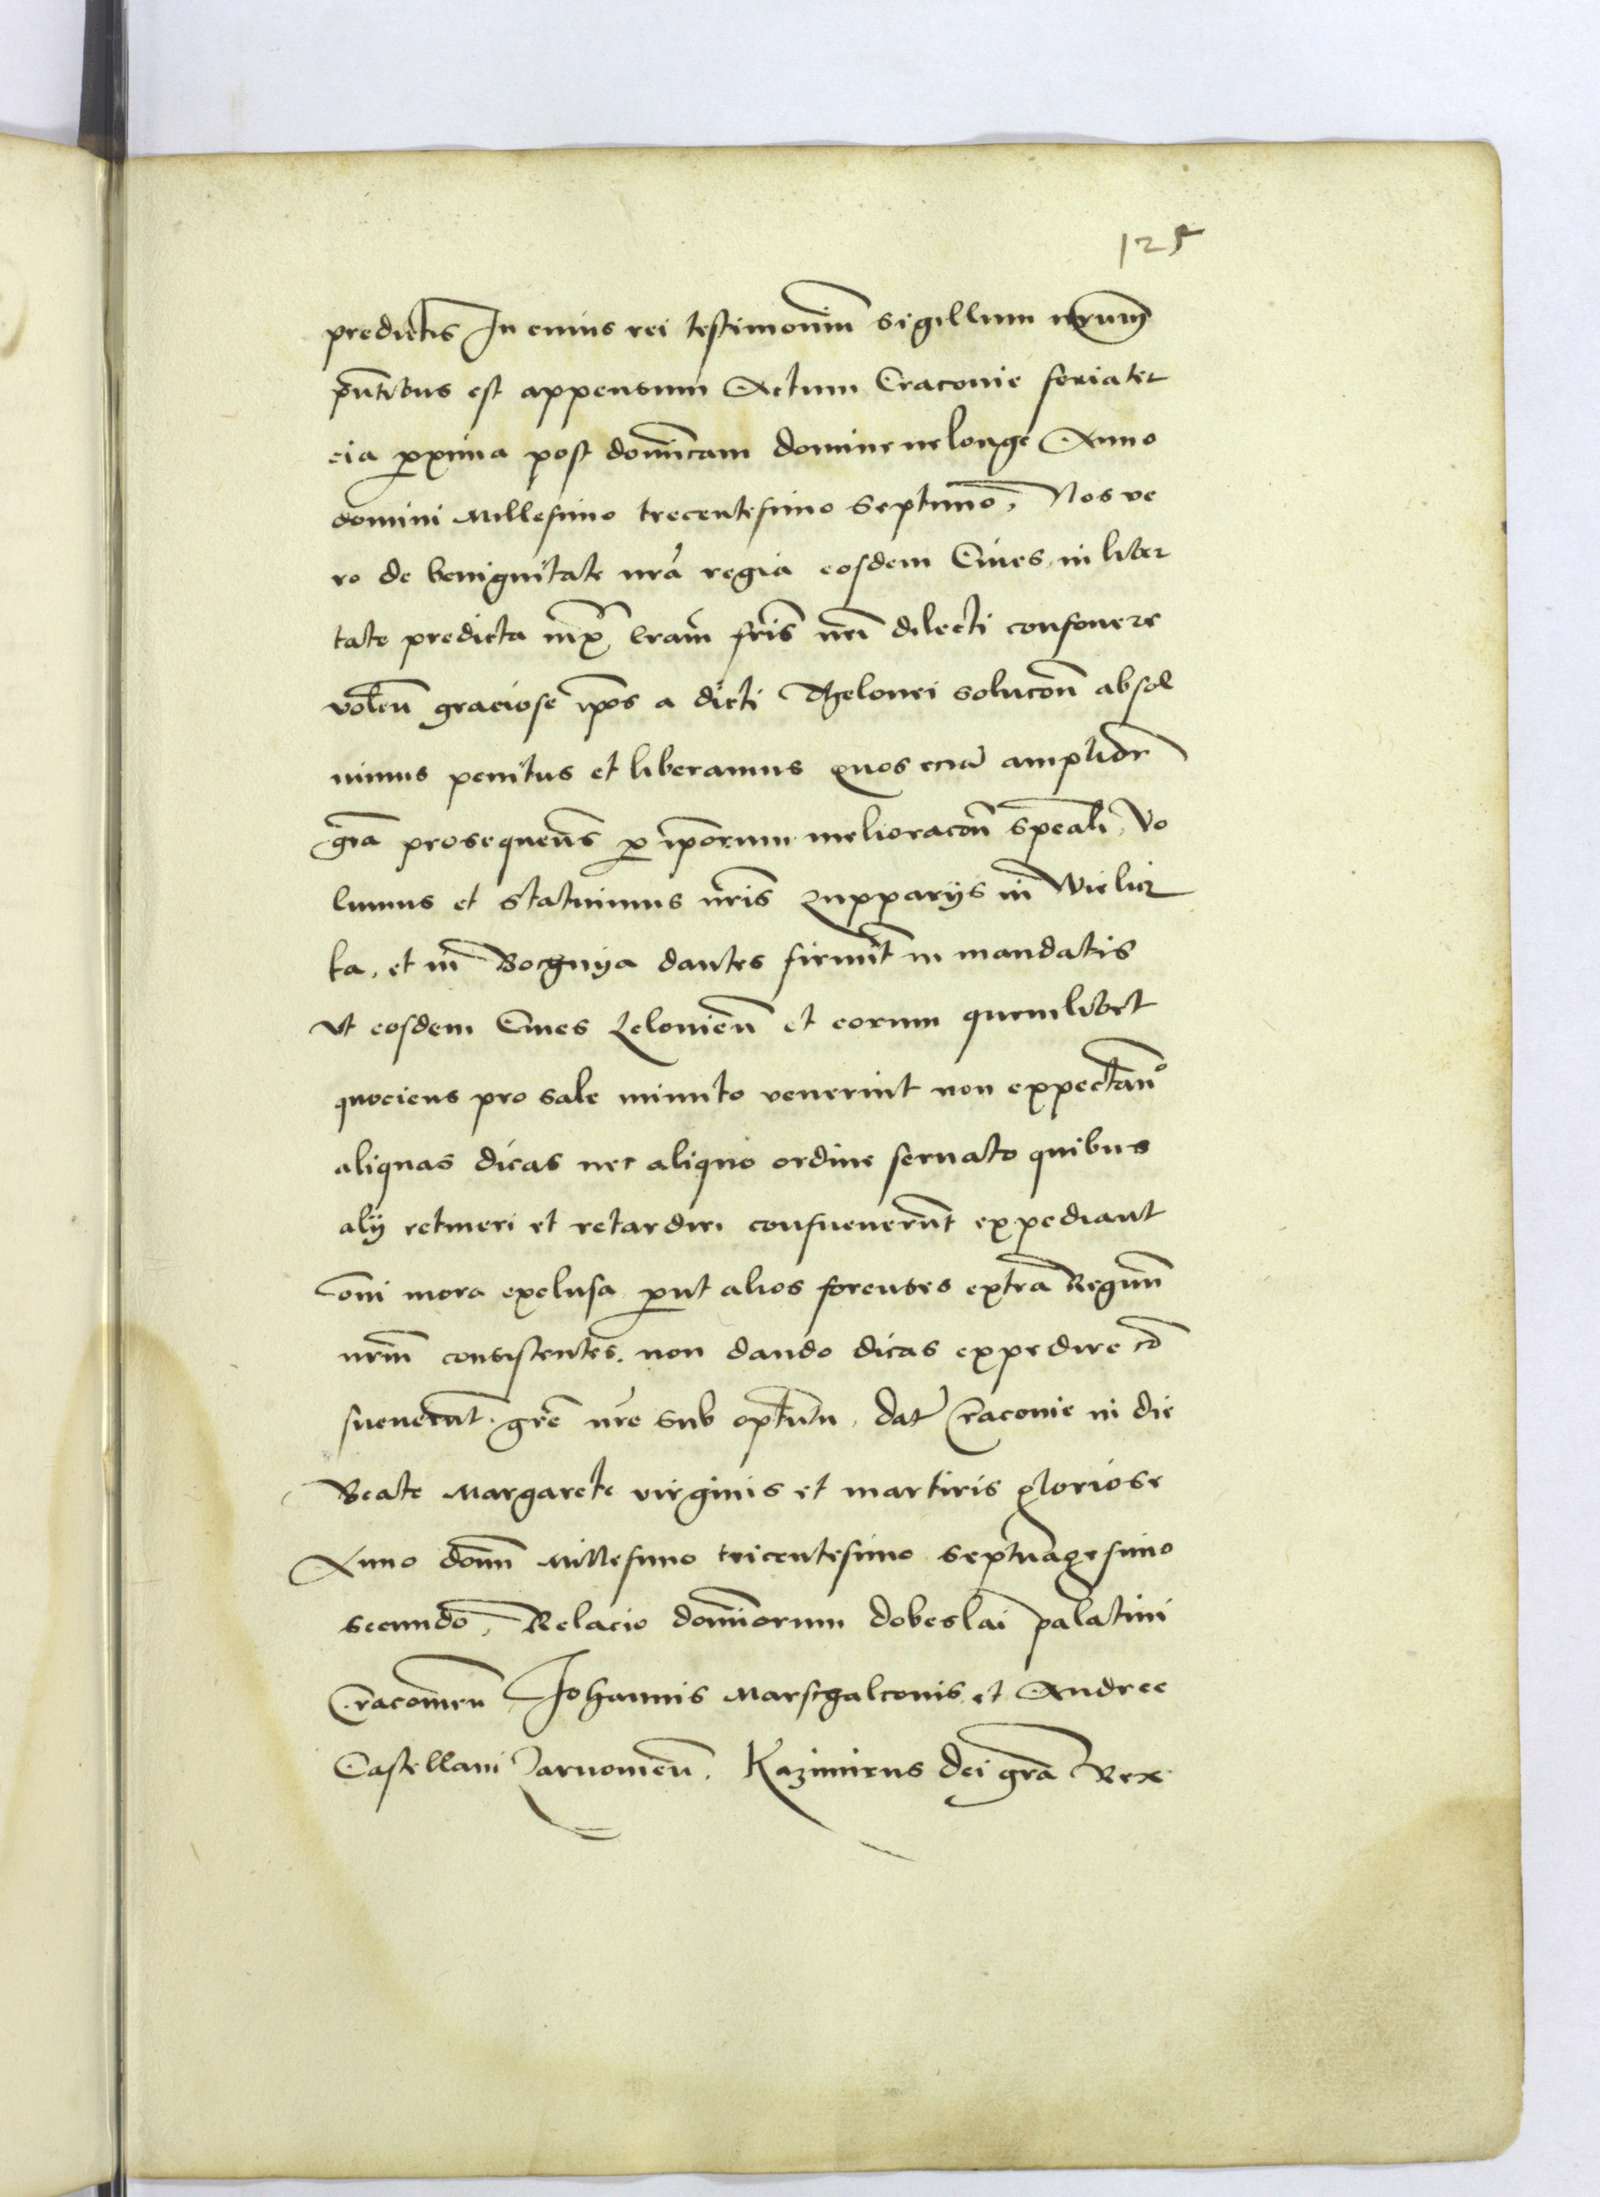 125
predictis In cuius rei testimoniū sigillum nr̄um
pn̄tibus est appensum Actum Cracouie feria ter
cia px̄ima post domīcam domine ne longe Anno
domini Millesimo trecentesimo septimo, Nos ve
ro de benignitate nrā regia eosdem Ciues in liber
tate predicta frīs nrī dilecti confouere
volen̄ graciose ip̄os a dicti Thelonei solucōn absol
uimus penitus et liberamus quos eciā ampliorī
grā prosequen̄s p ip̄orum melioracōn sp̄eali, Vo
lumus et statuimus nrīs zupparijs in Wielicz
ka, et in Bochnya dantes firmīt in mandatis
Vt eosdem Ciues Lelouien̄ et eorum quemlibet
quociens pro sale minuto venerint non expectan̄o
aliquas dicas nec aliquo ordine seruato quibus
alij retineri et retardiri consueuerūt expediant
om̄i mora exclusa put alios forenses extra Regnū
nrm̄ consistentes. non dando dicas expedire cō
sueuerūt. grē nrē sub optētu, dat Cracouie in die
Beate Margarete virginis et martiris gloriose
Anno domī Millesimo tricentesimo septuagesimo
secundo, Relacio domīorum dobeslai palatini
Cracouien̄ Johannis Marschalconis et Andree
Castellani Zarnouien̄. Kazimirus dei grā Rex